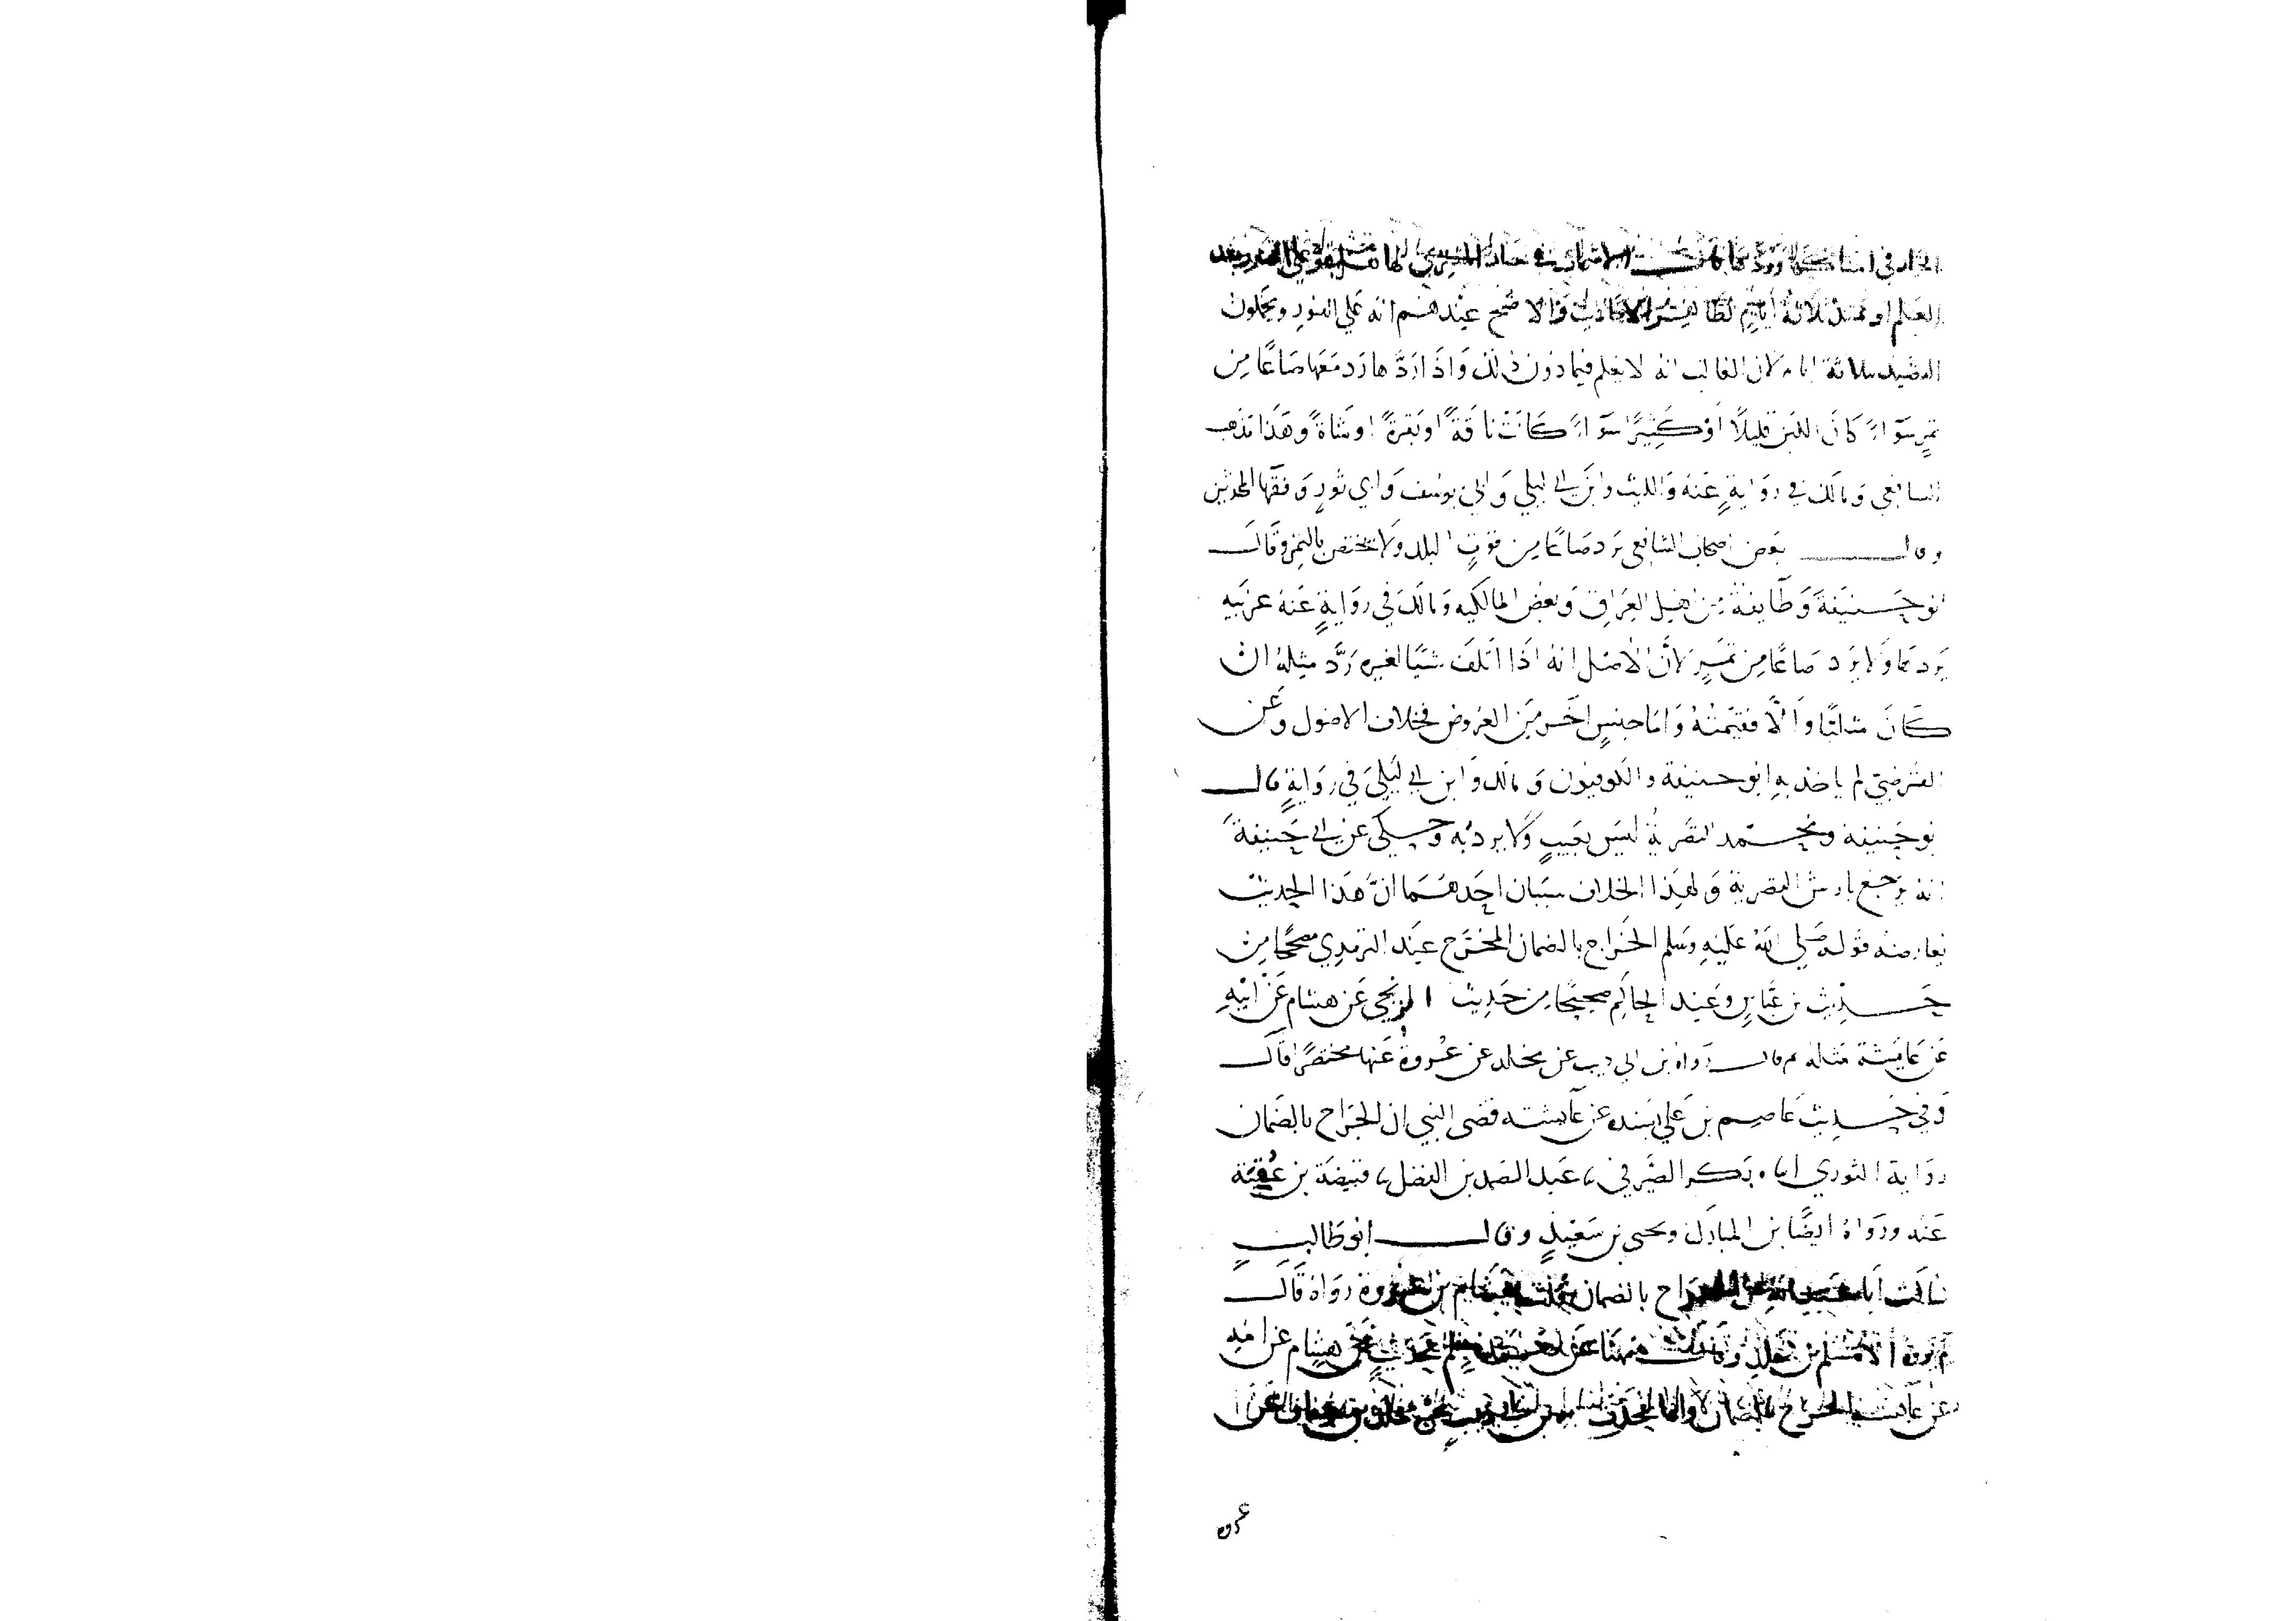 الخيار في امساكها وردها الامتاك في خيار المشتري لها هل هو علي الفور بعد
العلم او يمتد ثلاثة ايام لظاهر الاحاديث والاصح عندهم انه علي الفور ويحملون
التقييد بثلاثة ايام لان الغالب انه لا يعلم فيما دون ذلك وَاذَا ردَّها رَد مَعَها صَاعًا مِن
تمرٍ سَوَاءً كانَ اللبَن قليلًا أوْ كَثِيرًا سوَاءً كانَتْ ناقَةً اوْ بَقرةً او شاةً وهَذا مَذهب
الشافعي وَمالك في روَايةٍ عَنهُ وَالليث وابن ابي ليلي وَابي يوسُف وَابي ثورٍ وَفقهَا المحدثين
وقال بَعض اصحاب الشافعي يَرد صَاعًا مِن قوتِ البلد وَلا يختص بالتمر وقَالَ
ابو حَنيفَةَ وَطَايفة مِن اهل العِرَاق وَبعض المالكيه وَمالكَ في روَايةٍ عَنهُ غريبَه
يَردهَا وَلا يَرد صَاعًا مِن تمرٍ لأنَّ الاصل انهُ اذَا اتلفَ شيًا لغيره رَدَّ مِثلهُ ان
كَانَ مثليًا وَالَّا فقيمَتُهُ وَامَا جنسٍ اخَر مِنَ العرُوض فخلاف الاصُول وَعَن
القرطبي لم ياخذ بهِ ابو حنيفة والكوفيون وَمالك وَابن ابي ليلى في روَايةٍ قال
ابو حَنيفه ومحمد التصْريةُ ليسَ بعَيبٍ وَلا يردُ به وَحكي عَن ابي حَنيفَةَ
انه يَرجع بارش التصرية وَلهَذا الخلاف سببان احَدهمَا انَّ هَذا الحديث
يعارضه قوله صَلي اللهُ عَليْهِ وَسَلم الخَراج بالضمان المخرَج عِند الترمذي مصححًا مِن
حَديث بن عَباسٍ وعَند الحاكم صحيحًا مِن حَديث الزنجي عَن هشام عَن ابيْهِ
عَن عَايشة مثله ثم قال رَوَاه بن ابي ذيب عن مخلد عن عُروة عَنها مختصرًا قالَ
وَفي حَديث عَاصِم بن عَلي بسَنده عن عَايشه قضى النبي ان الخرَاج بالضمان
روَاية الثوري ابنا بَكر الصَيرفي ثنا عَبد الصَمد بن الفضل ثنا قبيصَة بن عُقبَة
عَنه وروَاهُ ايضًا بن المبارك ويحيى بن سَعِيْدٍ وقال ابو طَالبٍ
سَالت ابا عبد الله عن الخراج بالضمان فقلت هشام بن عروة روَاهُ قالَ
لم يروه الا مسلم بن خالد وقال مهنا عن احمد مسلم يحدث عن هشام عن ابيه
عن عايشة الخراج بالضمان وانما الحديث حديث بن ابي ذيب عن مخلد بن خفاف عن
عروه